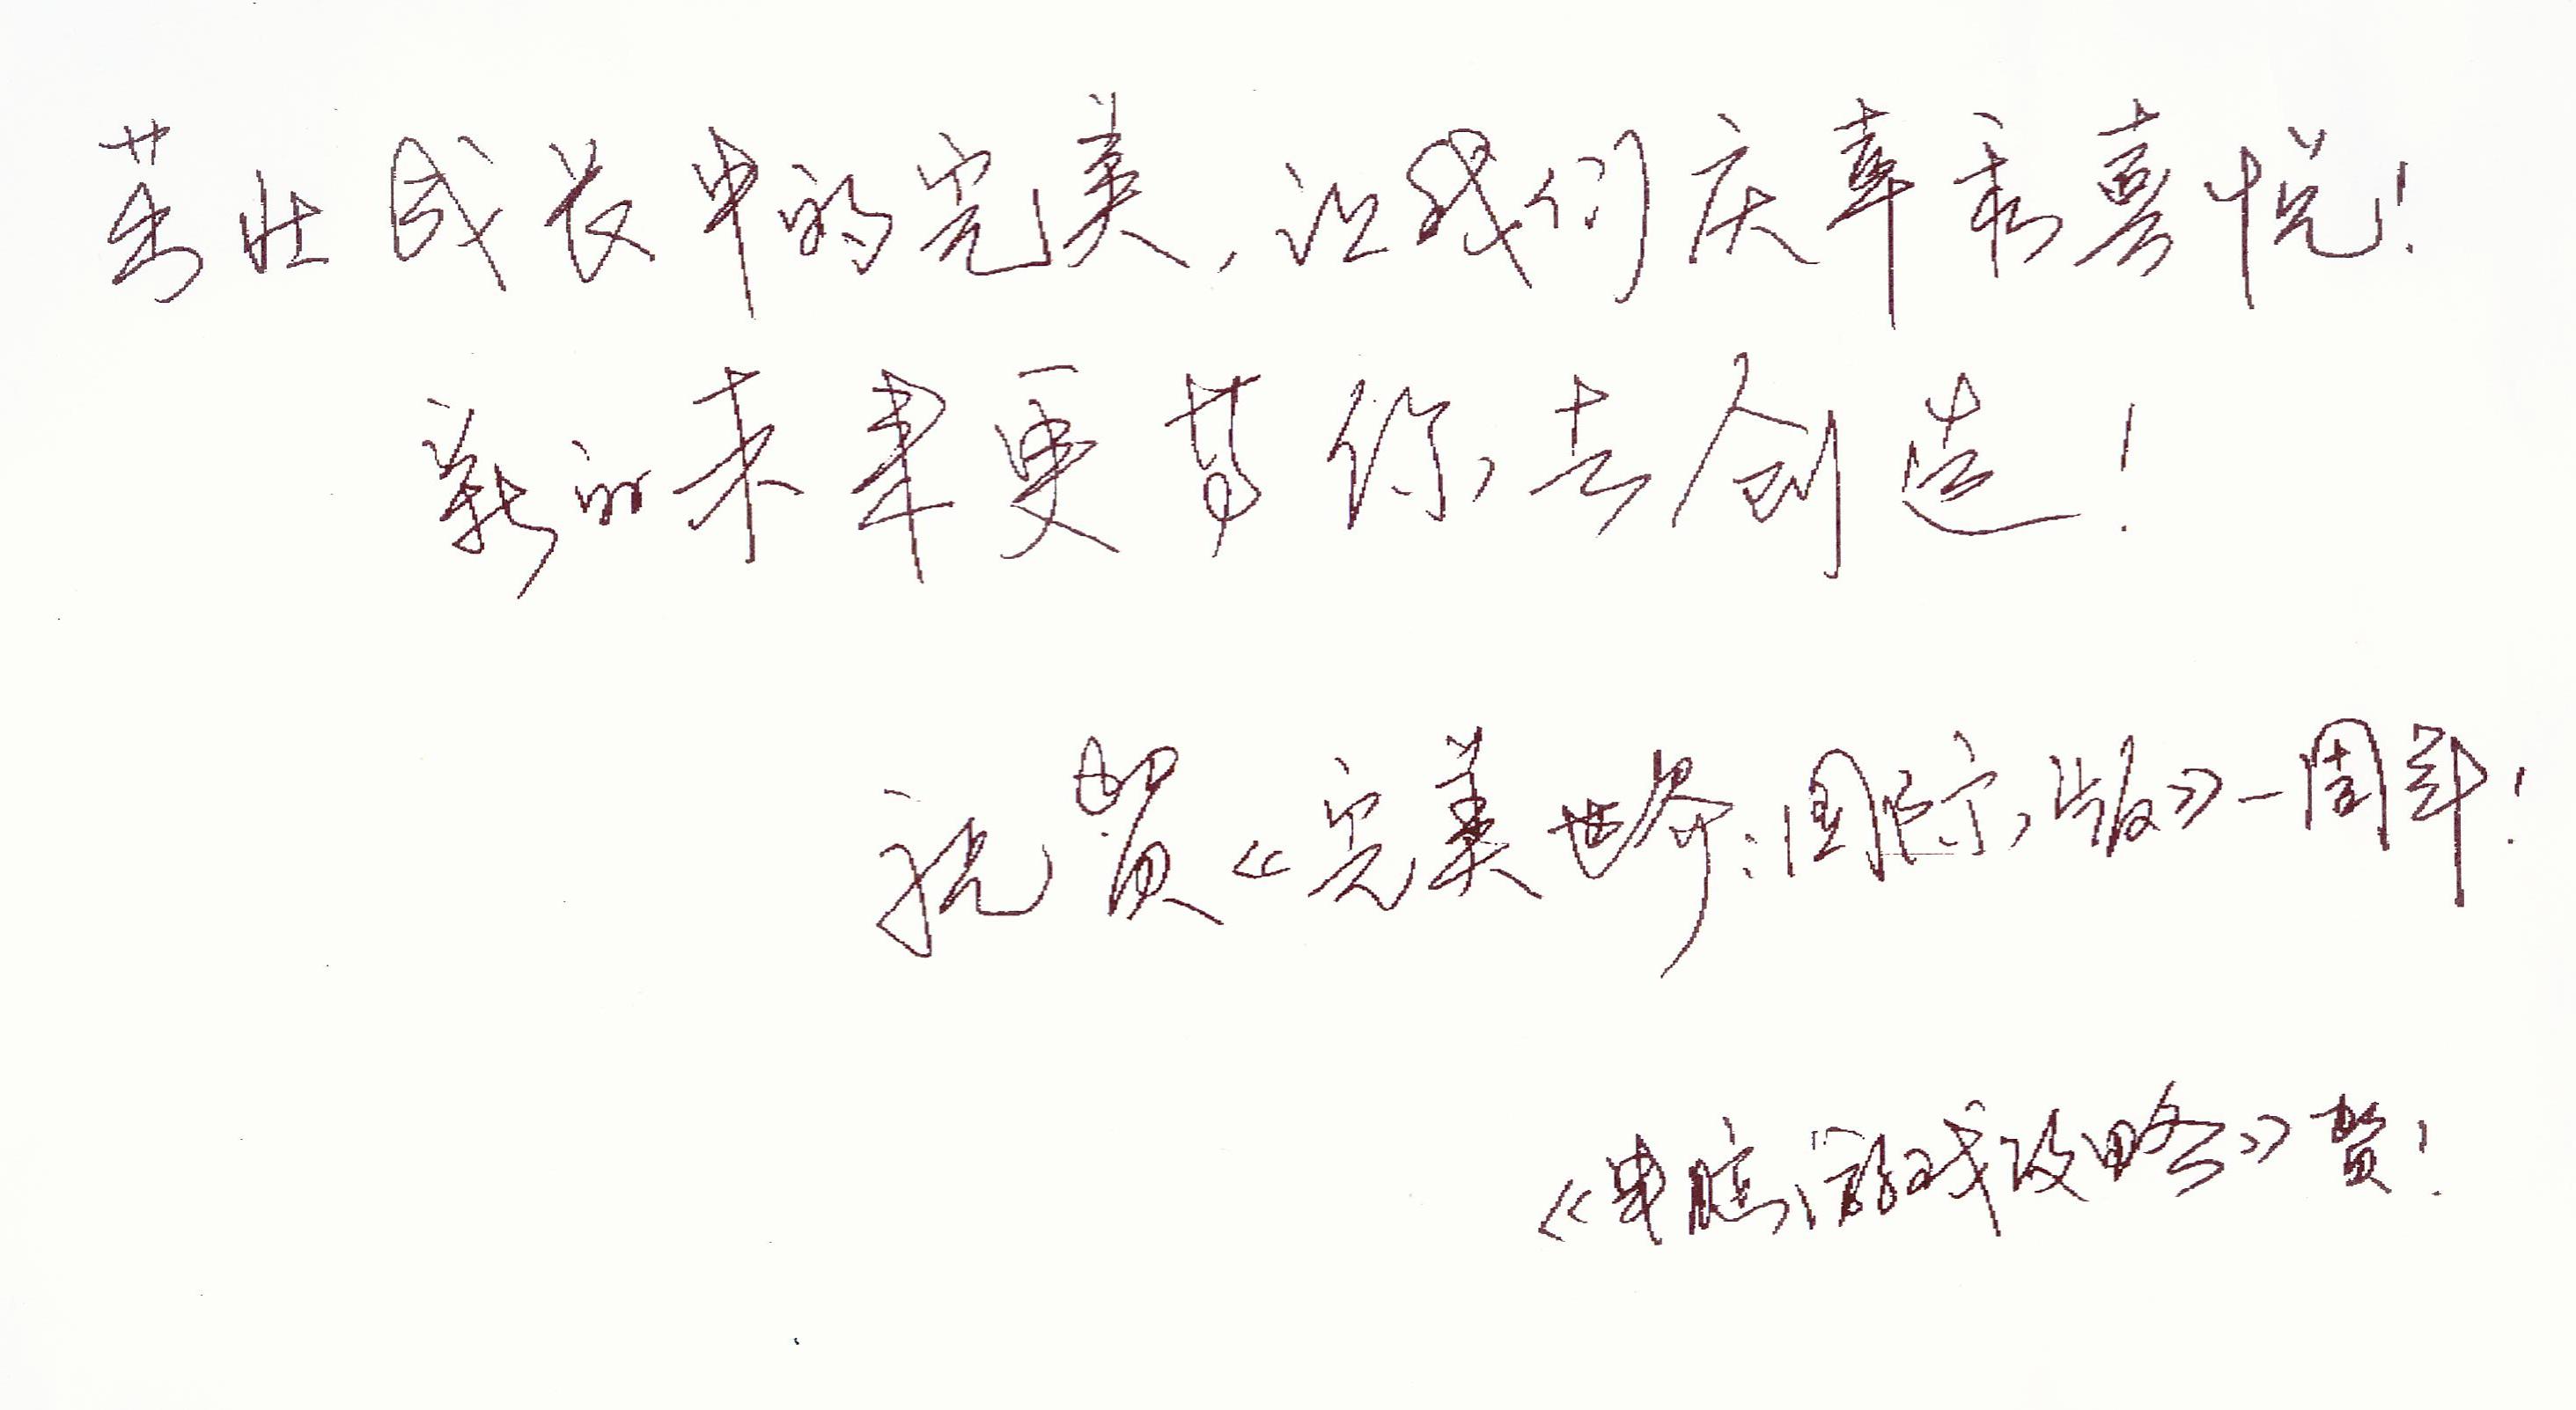 茁壮成长中的完美,让我们庆幸和喜悦!
新的未来更等你去创造!
祝贺《完美世界:国际版》一周年!
《电脑游戏攻略》贺!